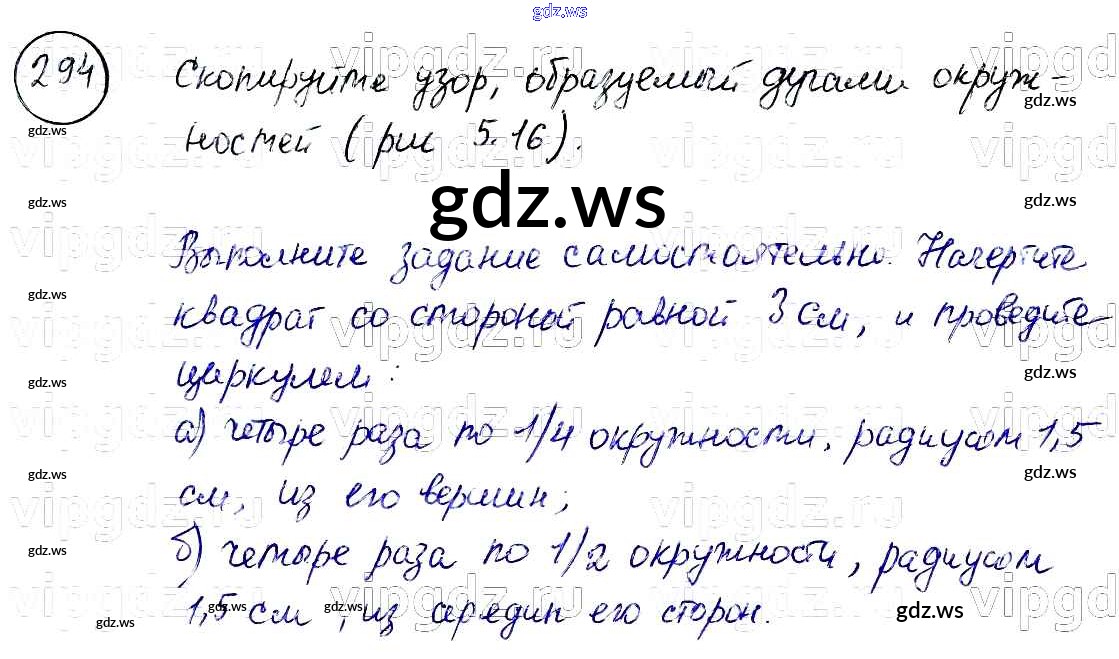 gdz.ws
294 Скопируйте узор, образуемый дугами окруж-
ностей (рис 5.16).
gdz.ws
Выполните задание самостоятельно. Начертите
квадрат со стороной равной 3 см, и проведите
циркулем:
а) четыре раза по 1/4 окружности, радиусом 1,5
см, из его вершин;
б) четыре раза по 1/2 окружности, радиусом
1,5 см, из середин его сторон.